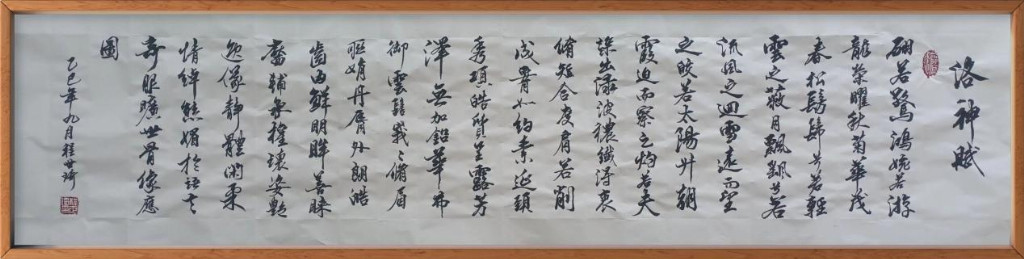 洛神賦
翩若驚鴻婉若游
龍榮曜秋菊華茂
春松髣髴兮若輕
雲之蔽月飄颻兮若
流風之迴雪遠而望
之皎若太陽升朝
霞迫而察之灼若夫
蕖出淥波穠纖得衷
脩短合度肩若削
成腰如約素延頸
秀項皓質呈露芳
澤無加鉛華弗
御雲髻峩々脩眉
聯娟丹脣外朗皓
齒內鮮明眸善睞
靨輔承權瓌姿艷
逸儀靜體閑柔
情綽態媚於語言
奇服曠世骨像應
圖
乙巳年九月桂世琦